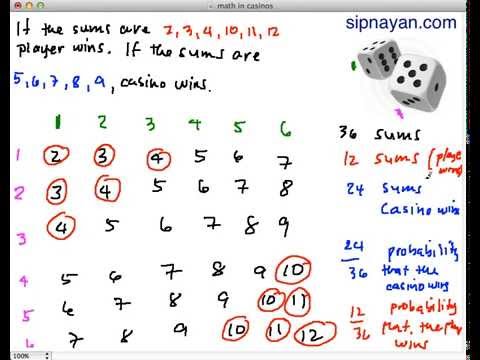 math in casinos
sipnayan.com
If the sums are 2, 3, 4, 10, 11, 12
player wins. If the sums are
5, 6, 7, 8, 9, casino wins.
1 2 3 4 5 6
1 2 3 4 5 6 7
2 3 4 5 6 7 8
3 4 5 6 7 8 9
4 5 6 7 8 9 10
5 6 7 8 9 10 11
6 7 8 9 10 11 12
36 sums
12 sums (player
wins)
24 sums
Casino wins
24/36 probability
that the
casino wins
12/36 probability
that the player
wins
100%